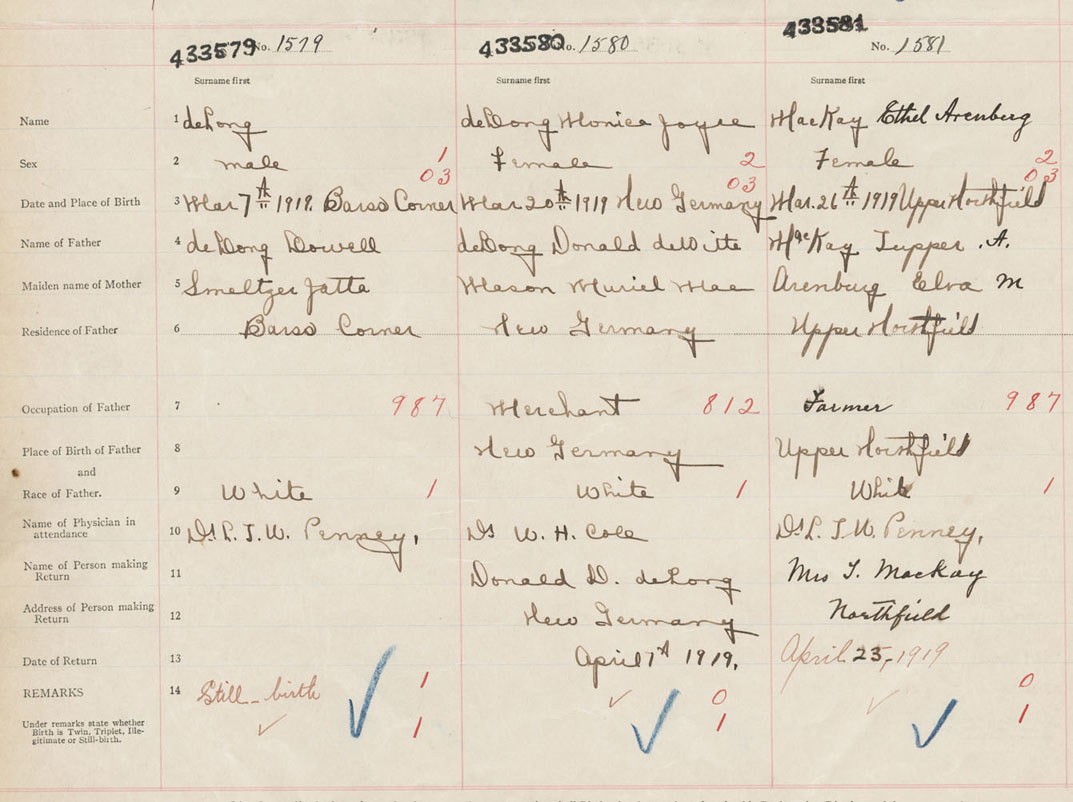 433579 No. 1579 433580 No. 1580 433581 No. 1581
Surname first Surname first Surname first
Name 1 deLong deLong Monica Joyce MacKay Ethel Arenberg
Sex 2 male 1 Female 2 Female 2
Date and Place of Birth 3 Mar 7th 1919. Barss Corner 03 Mar 20th 1919 New Germany 03 Mar. 26th 1919 Upper Northfield 03
Name of Father 4 deLong Dowell deLong Donald deWitte MacKay Tupper . A.
Maiden name of Mother 5 Smeltzer Jatta Mason Muriel Mae Arenburg Elva M
Residence of Father 6 Barss Corner New Germany Upper Northfield
Occupation of Father 7 987 Merchant 812 Farmer 987
Place of Birth of Father 8 New Germany Upper Northfield
and
Race of Father. 9 White 1 White 1 White 1
Name of Physician in
attendance 10 Dr L. J. W. Penney, Dr W. H. Cole Dr L. J. W. Penney,
Name of Person making
Return 11 Donald D. deLong Mrs T. MacKay
Address of Person making
Return 12 New Germany Northfield
Date of Return 13 April 7th 1919. April 23, 1919
REMARKS 14 Still-birth 1 0 0
Under remarks state whether
Birth is Twin, Triplet, Ille-
gitimate or Still-birth. 1 1 1